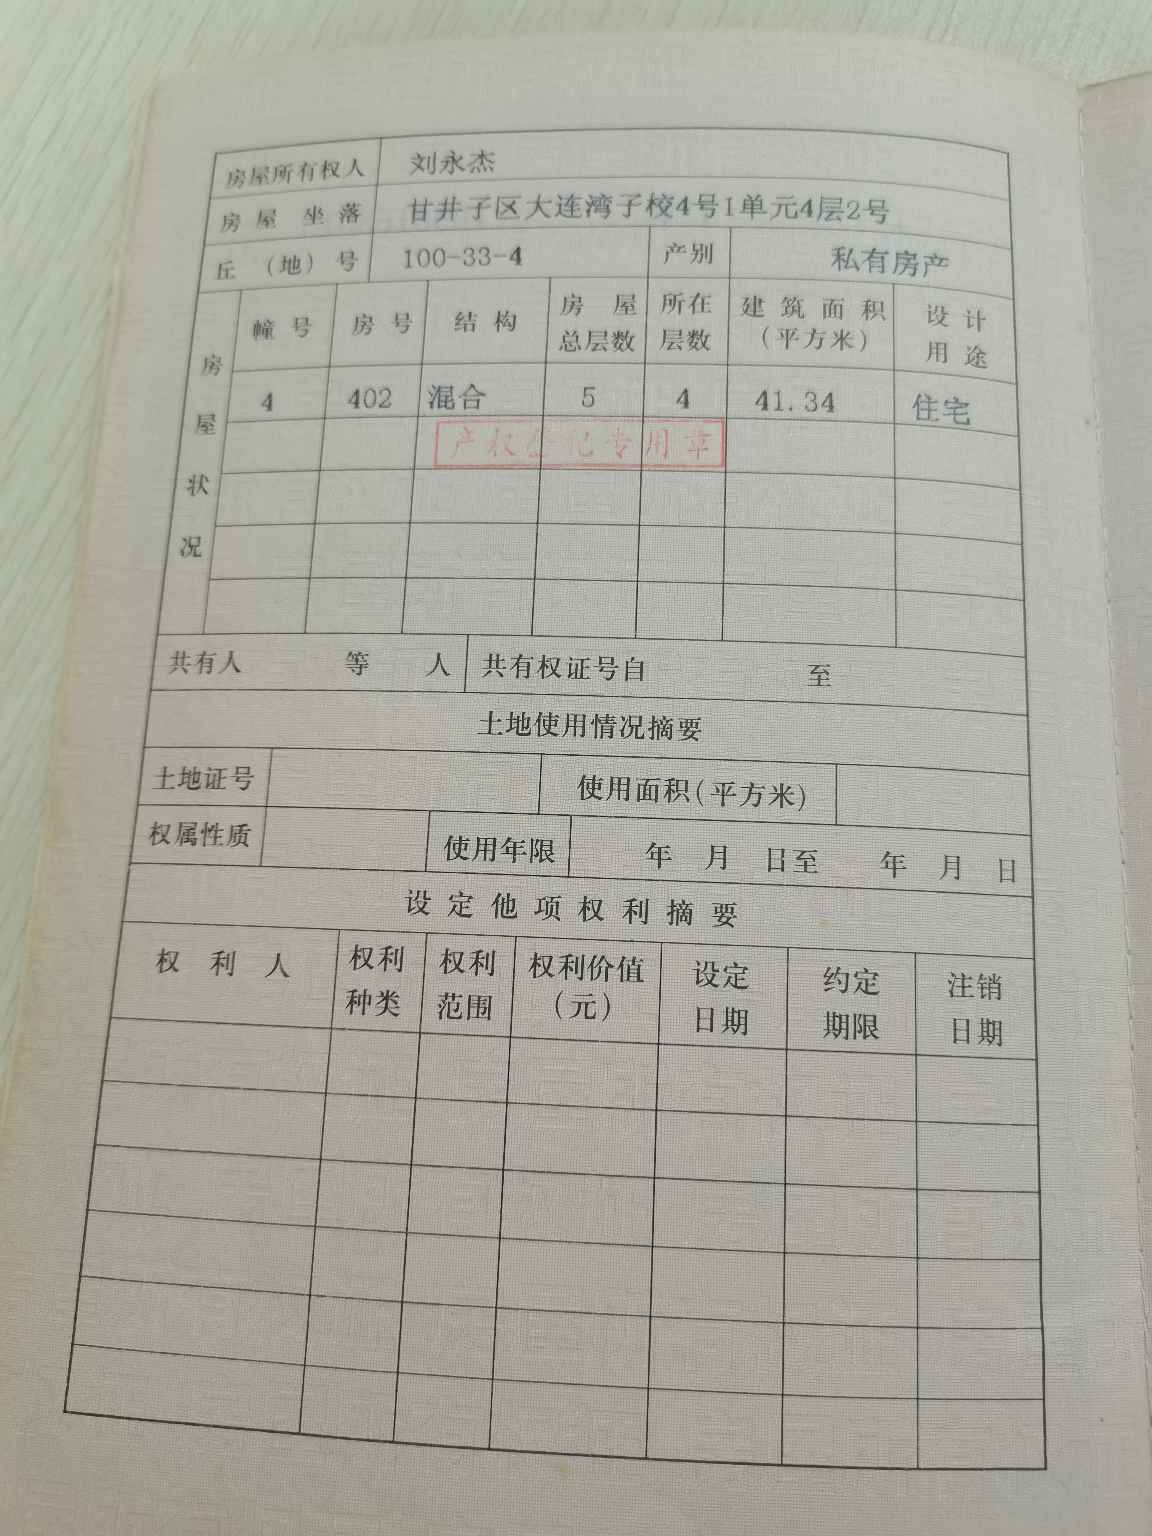 房屋所有权人 刘永杰
房屋坐落 甘井子区大连湾子校4号1单元4层2号
丘（地）号 100-33-4 产别 私有房产
房屋状况 幢号 房号 结构 房屋总层数 所在层数 建筑面积（平方米） 设计用途
4 402 混合 5 4 41.34 住宅
产权登记专用章
共有人 等 人 共有权证号自 至
土地使用情况摘要
土地证号 使用面积(平方米)
权属性质 使用年限 年 月 日至 年 月 日
设定他项权利摘要
权利人 权利种类 权利范围 权利价值（元） 设定日期 约定期限 注销日期